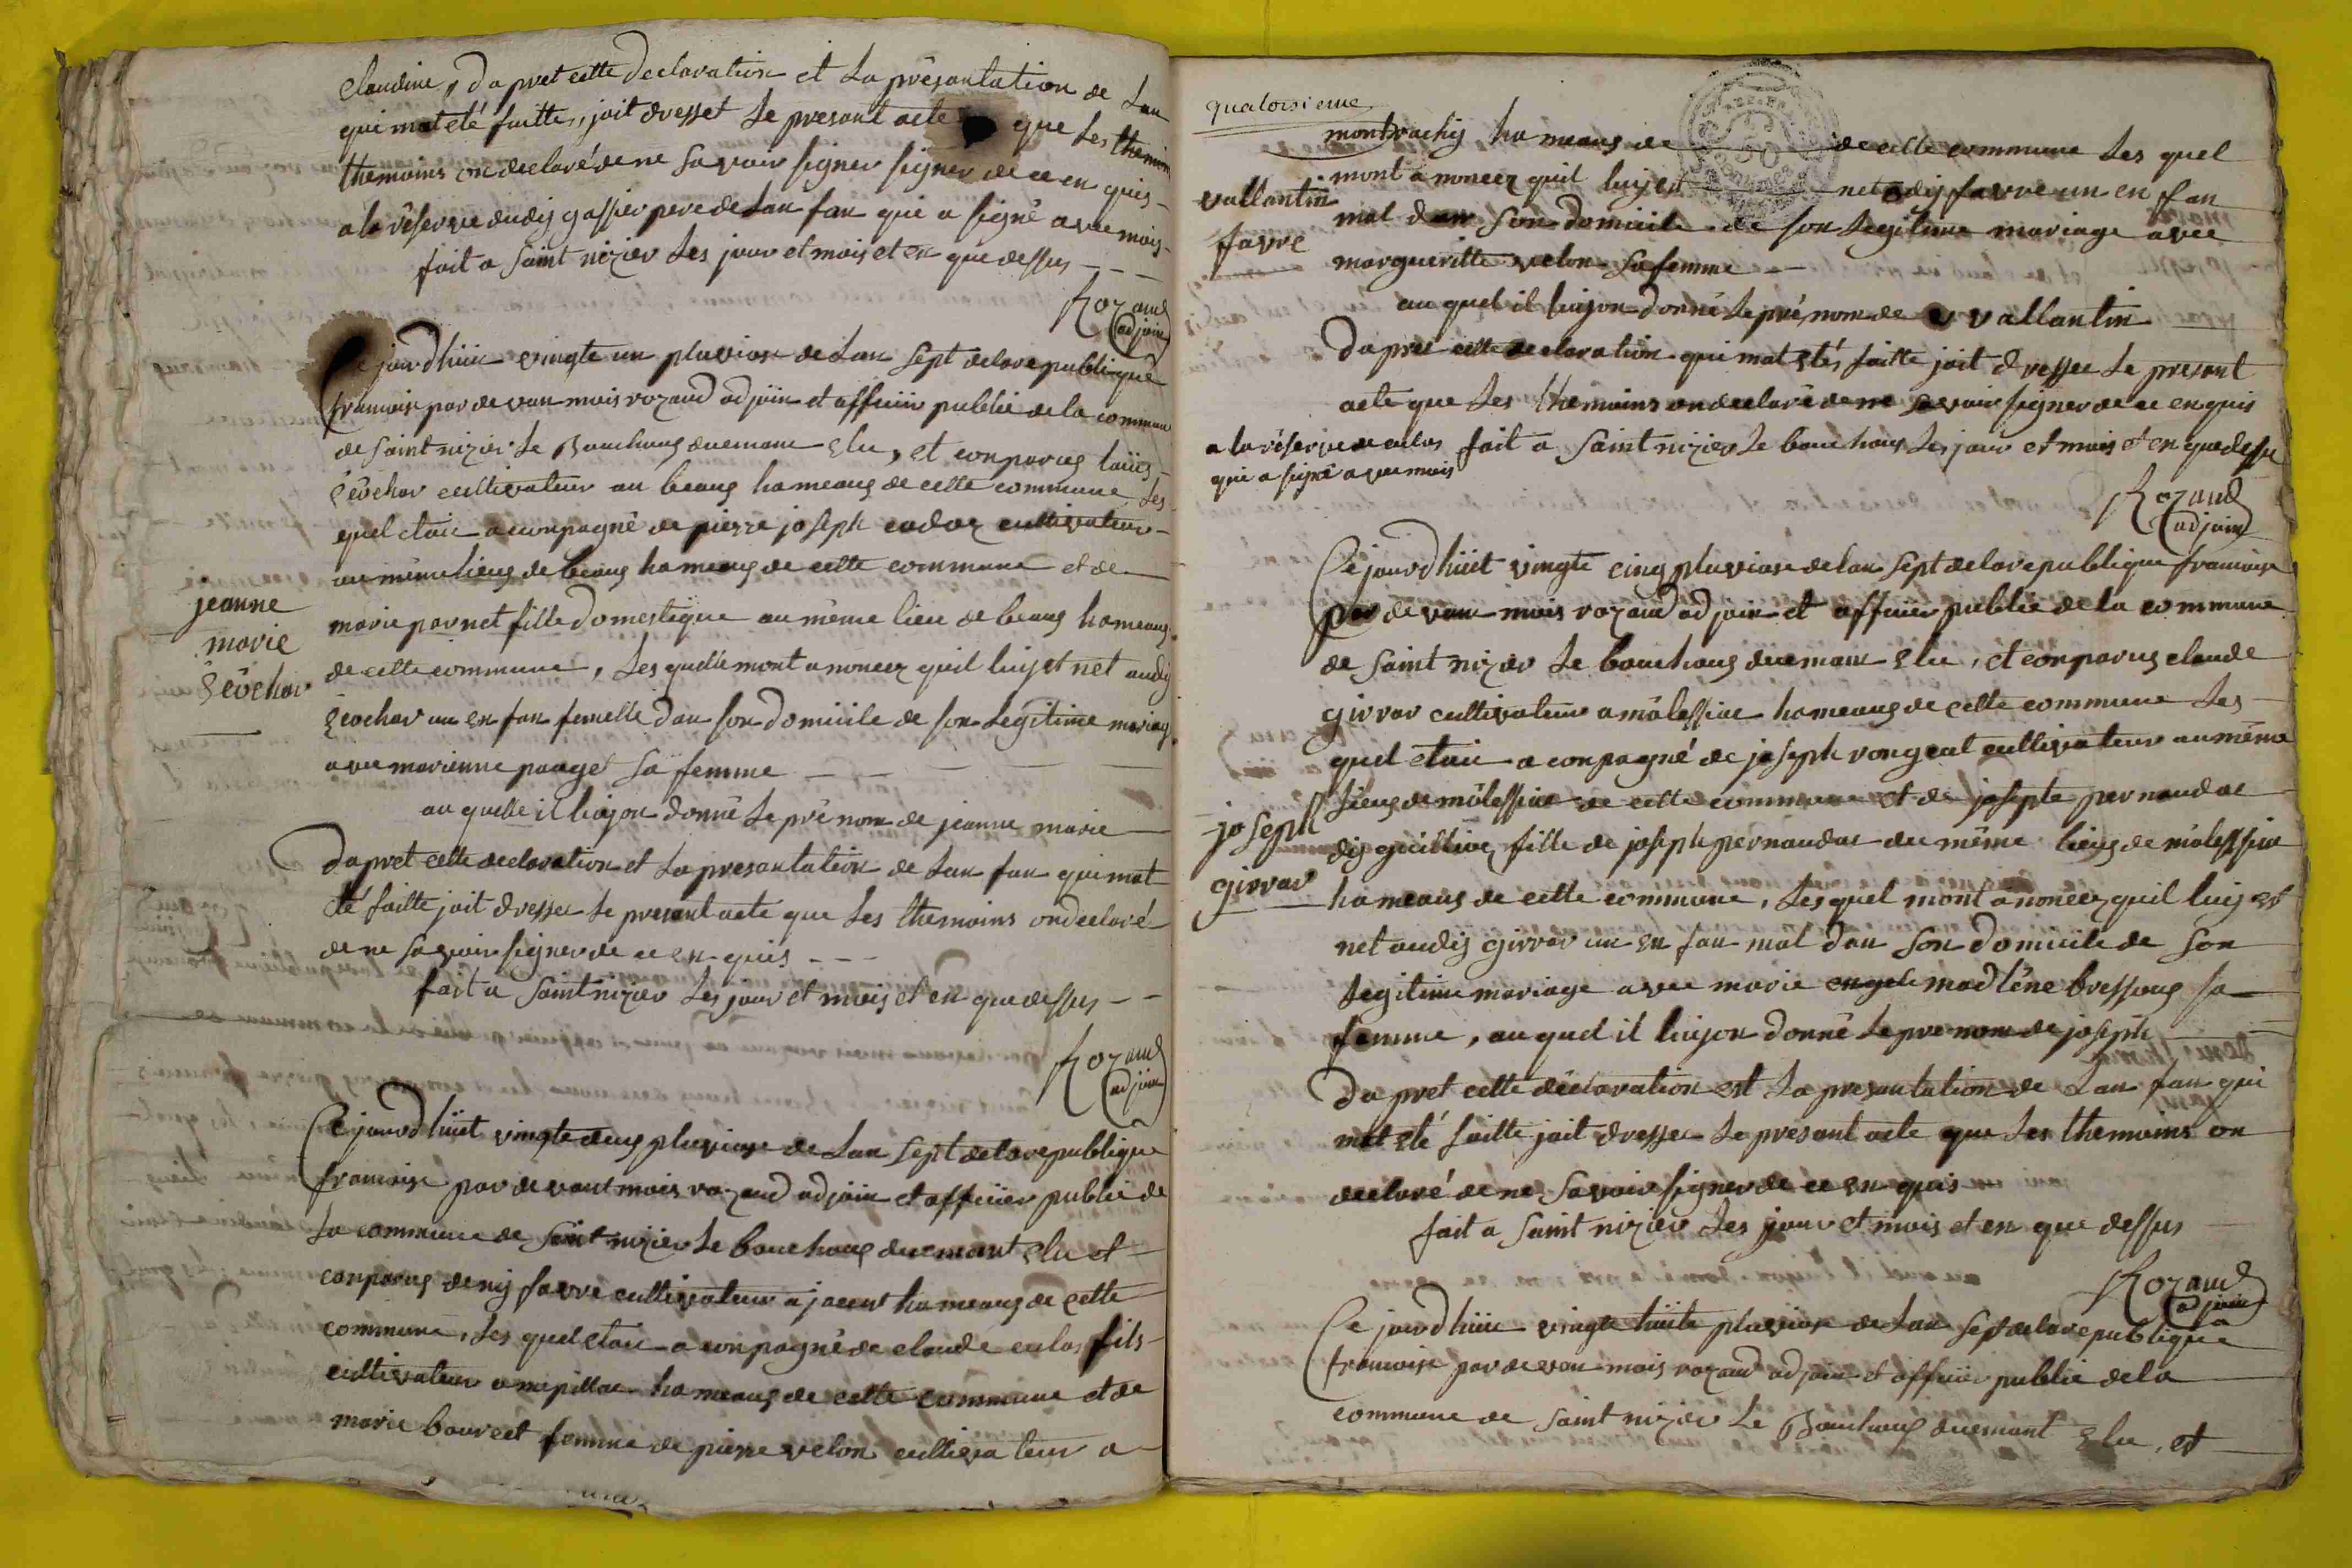 Claudine, da pret cette declaration et La présantation de Lan
qui mat eté faitte, jait dresset Le presant acte que Les themoin
themoins on declaré de ne savoir signer signer de ce en quis
a la réserve dudij gassier pere de Lan fan qui a signé avec mois
fait a saint nizier Les jour et mois et en que dessus
Rozand
adjoin
Ce jourdhüic vingte un pluviose de Lan sept de la republique
francoise par devan mois rozand adjoin et afficiir public de la commune
de saint nizier Le Bouchoug duemant elu, et conparus loüis
Eèochar cultivateur au beaug hameaug de cette commune Les
quel etaic aconpagné de pierre joseph cadoz cultivateur
au même lieug de beaug hameaug de cette commune et de
marie parnet fille domestique au même lieu de beaug hameaug
de cette commune, Les quelle mont anoncez quil luij et net audij
Eeochar un en fan femelle dan son domicile de son Legitime mariag
avec marienne pauget sa femme
au quelle il luijon donné Le prénom de jeanne marie
jeanne
marie
Eèochar
Da pret cette declaration et La presantation de Lan fan qui mat
été faitte jait dresser Le presant acte que Les themoins on declaré
de ne savoir signer de ce en quis
fait a saint nizier Les jour et mois et en que dessus
Rozand
adjoin
Ce jourdhüit vingte deug pluviose de Lan sept de la republique
francoise par devant mois rozand adjoin et afficiier public de
La commune de saint nizier Le bouchoug duemant elu et
conparus denij favre cultivateur a jacour hameaug de cette
commune, Les quel etaic aconpagné de claude culas fils
cultivateur a mepillac hameaug de cette commune et de
marie bouvect femme de pierre velon cultivateur a
quatorsieme
montrachij hameaug de de cette commune Les quel
mont anoncez quil luij et net a dij favre un en fan
mal dan son domicile de son Legitime mariage avec
margueritte velon sa femme
vallantin
favre
au quel il luijon donné Le prénom de vallantin
Da pret cette declaration qui mat etés faitte jait dressee Le presant
acte que Les themoins on declaré de ne savoir signer de ce en quis
a la réserve de culas fait a saint nizier Le bouchoug Les jour et mois et en que dessu
qui a signé avec mois
Rozand
adjoin
Ce jourdhüit vingte cinq pluviose de lan sept de la republique francoise
par devan mois rozand adjoin et afficiier public de la commune
de saint nizier Le bouchoug duemant elu, et conparus claude
girrar cultivateur a málessiae hameaug de cette commune Les
quel etaic aconpagné de joseph vongeat cultivateur au même
Lieug de málessiae de cette commune et de josepte pernaudae
dij guillier fille de joseph pernaudae du même lieug de málessiae
hameaug de cette commune, Les quel mont anoncez quil luij est
net audij girrar un en fan mal dan son domicile de son
Legitime mariage avec marie engele madlêne bressoug sa
femme, au quel il luijon donné Le prenom de joseph
joseph
girrar
Da pret cette déclaration est La presantation de Lan fan qui
mat eté faitte jait dresser Le presant acte que Les themoins on
declaré de ne savoir signer de ce en quis
fait a saint nizier Les jour et mois et en que dessus
Rozand
adjoin
Ce jourdhüic vingte hüite pluviose de Lan sept de la republique
francoise par devan mois rozand adjoin et afficiir public de la
commune de saint nizier Le Bouchoug duemant elu, et